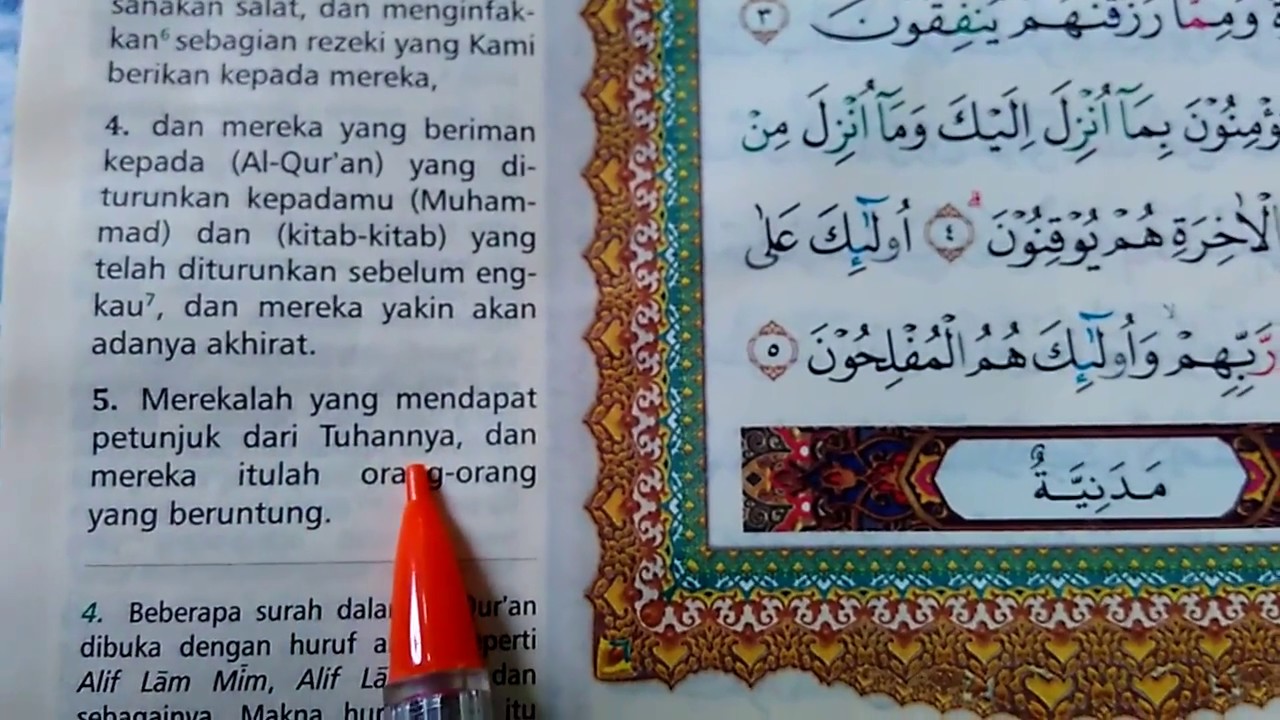 sanakan salat, dan menginfak-
kan⁶ sebagian rezeki yang Kami
berikan kepada mereka,
4. dan mereka yang beriman
kepada (Al-Qur'an) yang di-
turunkan kepadamu (Muham-
mad) dan (kitab-kitab) yang
telah diturunkan sebelum eng-
kau⁷, dan mereka yakin akan
adanya akhirat.
5. Merekalah yang mendapat
petunjuk dari Tuhannya, dan
mereka itulah orang-orang
yang beruntung.
4. Beberapa surah dala Qur'an
dibuka dengan huruf
Alif Lām Mīm, Alif dan
sebagainya. Makna itu
وَمِمَّا رَزَقْنٰهُمْ يُنْفِقُوْنَ ٣
بِمَآ اُنْزِلَ اِلَيْكَ وَمَآ اُنْزِلَ مِنْ
الْاٰخِرَةِ هُمْ يُوْقِنُوْنَۗ ٤ اُولٰۤىِٕكَ عَلٰى
رَّبِّهِمْ ۙ وَاُولٰۤىِٕكَ هُمُ الْمُفْلِحُوْنَ ٥
مَدَنِيَّةٌ